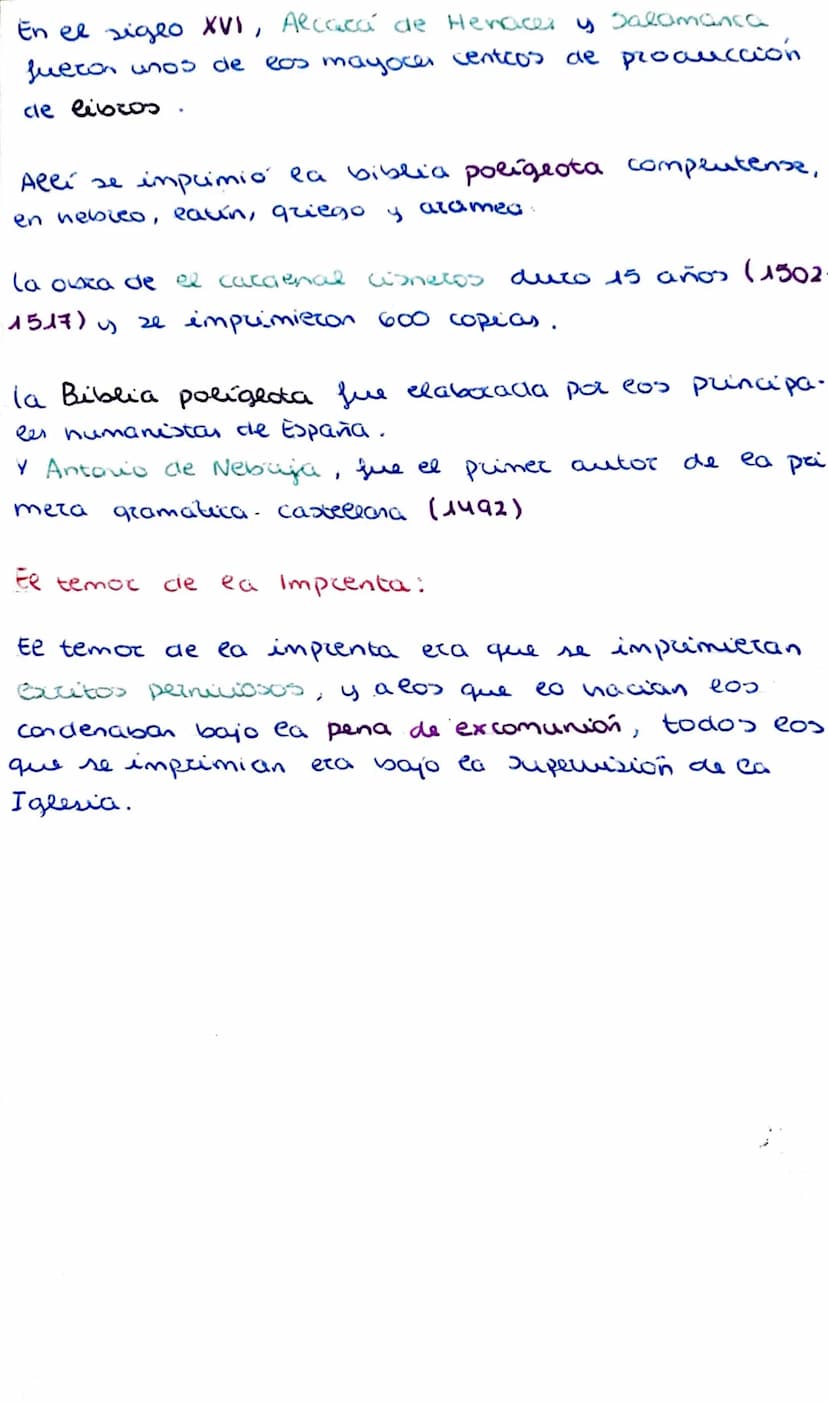 En el siglo XVI, Alcalá de Henares y Salamanca
fueron unos de los mayores centros de producción
de libros.
Allí se imprimió la biblia políglota complutense,
en hebreo, latín, griego y arameo.
La obra de el cardenal cisneros duro 15 años (1502-
1517) y se imprimieron 600 copias.
La Biblia políglota fue elaborada por los principa-
les humanistas de España.
Y Antonio de Nebrija, fue el primer autor de la pri
mera gramática - castellana (1492)
El temor de la Imprenta:
El temor de la imprenta era que se imprimieran
Escritos perniciosos, y a los que lo hacían los
condenaban bajo la pena de excomunión, todos los
que se imprimian era bajo la supervisión de la
Iglesia.